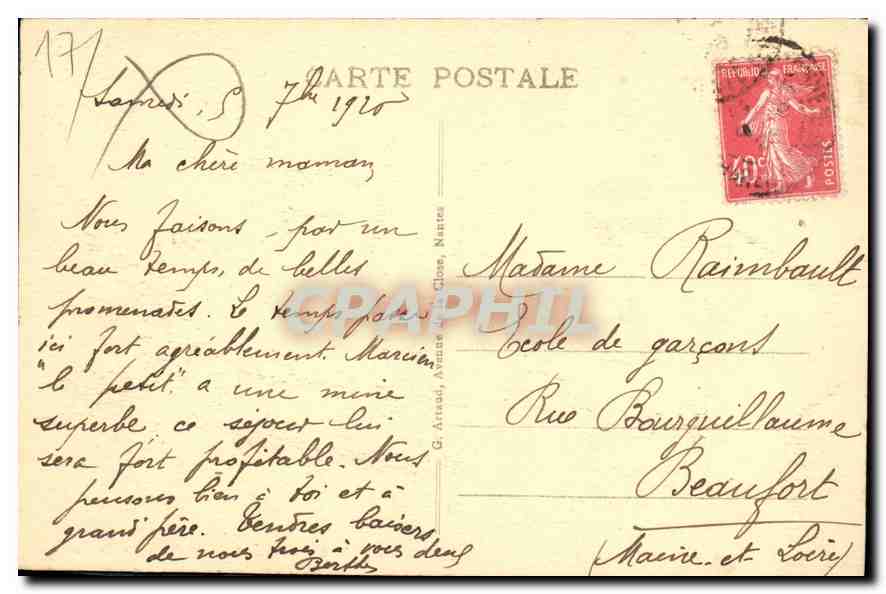 17
CARTE POSTALE
Samedi, 5 7bre 1925
Ma chère maman
Nous faisons, par un
beau temps, de belles
promenades. Le temps passe
ici fort agréablement. Marcien
"le petit" a une mine
superbe ce séjour lui
sera fort profitable. Nous
pensons bien à toi et à
grand père. Tendres baisers
de nous trois à vous deux
Berthe
G. Artaud, Avenue de la Close, Nantes
REPUBLIQUE FRANÇAISE
40c
POSTES
Madame Raimbault
Ecole de garçons
Rue Bourguillaume
Beaufort
(Maine-et-Loire)
CPAPHIL